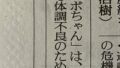 の危機
樹）
ポちゃん」は、
体調不良のため